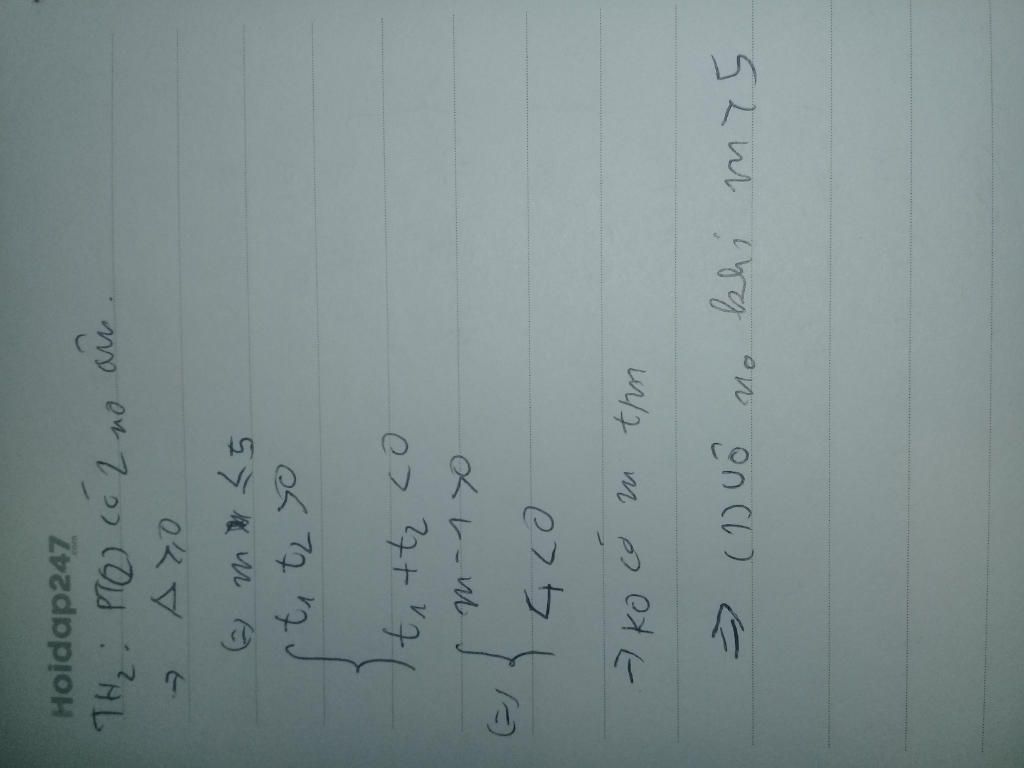 Hoidap247.com
TH2: PT(2) có 2 no âm.
→ Δ ≥ 0
(=) m ≤ 5
{ t1 t2 > 0
t1 + t2 < 0
(=) { m - 1 > 0
4 < 0
→ ko có m t/m
=> (1) vô no khi m > 5